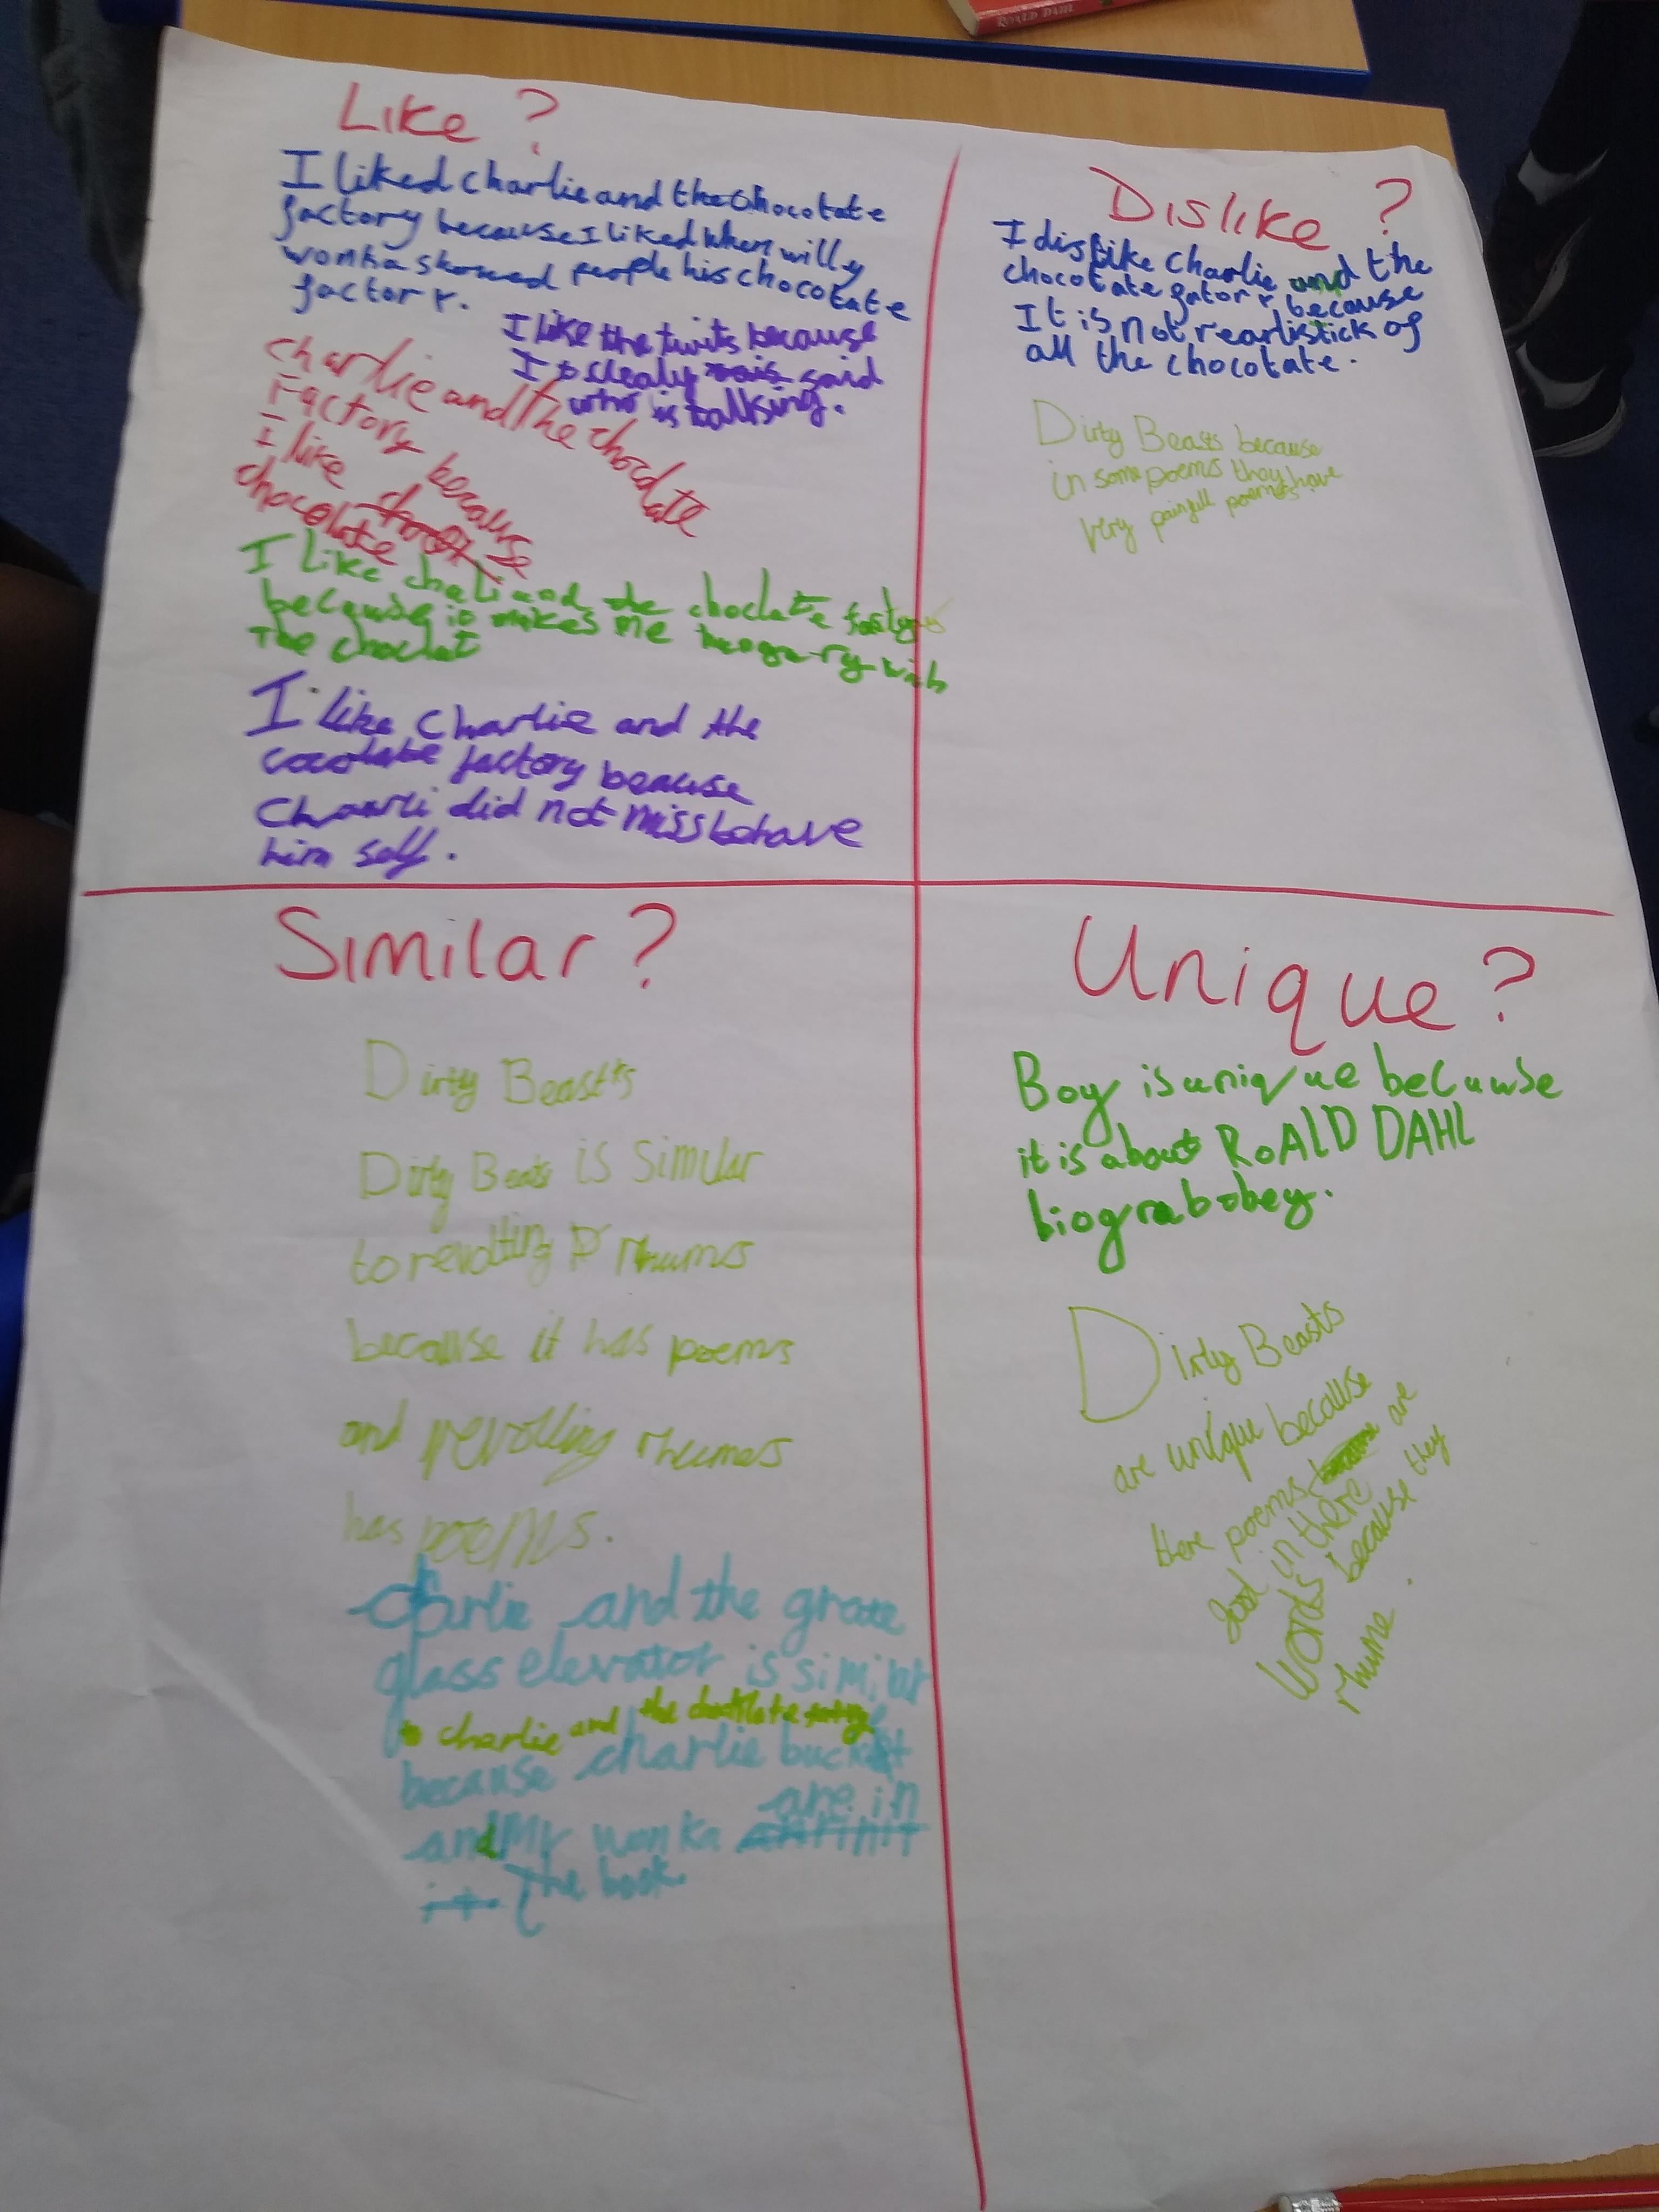 ROALD DAHL
Like ?
I liked charlie and the chocolate
factory because I liked when willy
wonka showed people his chocolate
factory.
I like the twits because
I clealy said
who is talking.
charlie and the chocolate
Factory because
I like
chocolate
I like chali and the choclate
because it makes me with
the choclat
I like Charlie and the
cocolate factory beacuse
Charli did not missbehave
him self.
Dislike ?
I dislike charlie and the
chocolate fatory because
It is not rearlistick of
all the chocolate.
Dirty Beasts because
in some poems they have
very painfull poems.
Similar ?
Dirty Beasts
Dirty Beasts is similar
to revolting rhumes
because it has poems
and revolting rhumes
has poems.
charlie and the grate
glass elevator is similar
to charlie and the
because charlie bucket
and Mr wonka are in
the book
Unique ?
Boy is unique because
it is about ROALD DAHL
biograbobey.
Dirty Beasts
are unique because
there poems are
good in there
words because they
rhume.